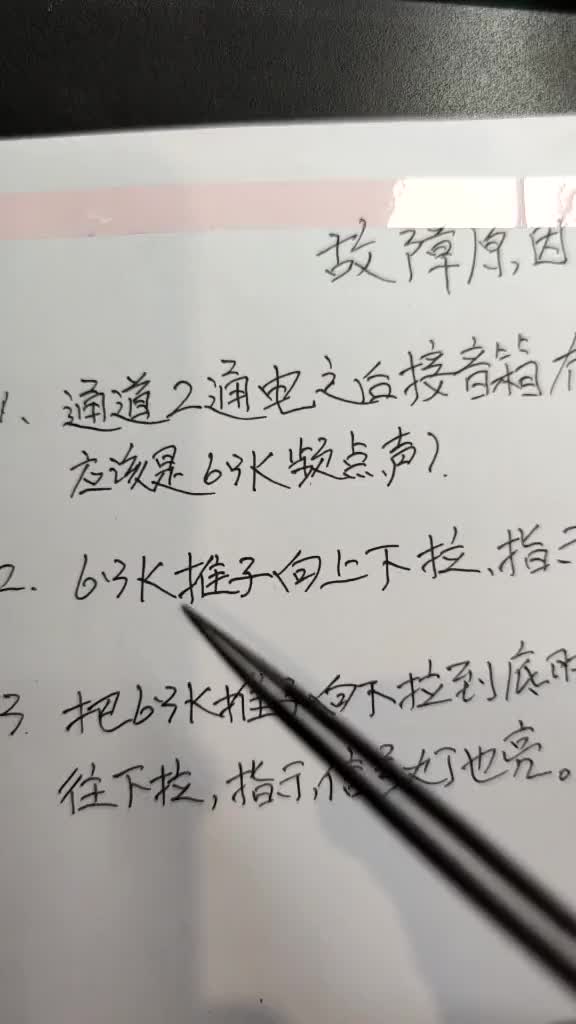 故障原因
1、通道2通电之后接音箱有
应该是6.3K频点声）.
2. 6.3K推子向上下拉、指示
3. 把6.3K推子向下拉到底时
往下拉，指示信号灯也亮。